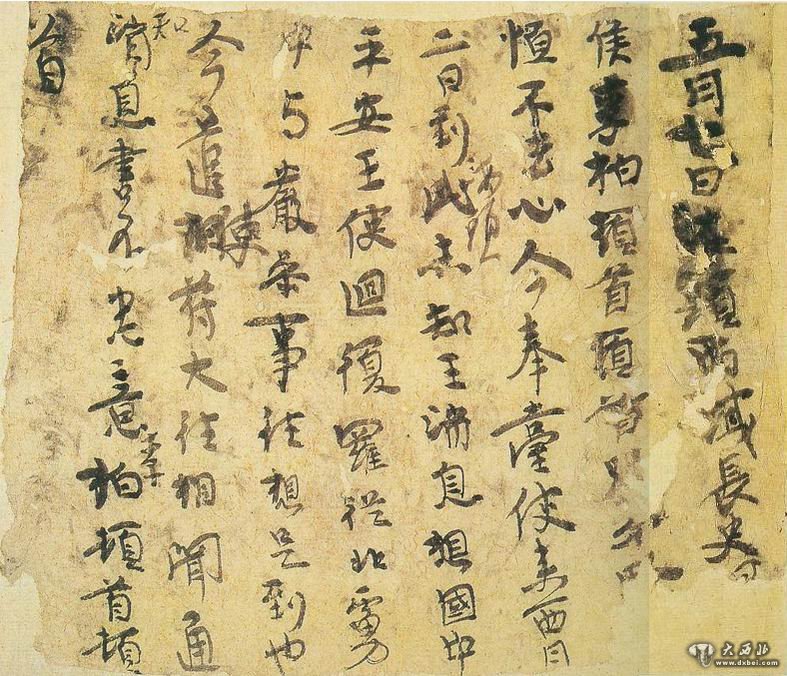 五月七日海頭西域長史
侯李柏頓首頓首
恒不去心今奉臺使来西月
二日到此海頭未知王消息想國中
平安王使廻復羅従北虜
中与嚴參事往想是到也
今遣使苻大往相聞通
知消息書不悉意李柏頓首頓
首
大西北
www.dxbei.com